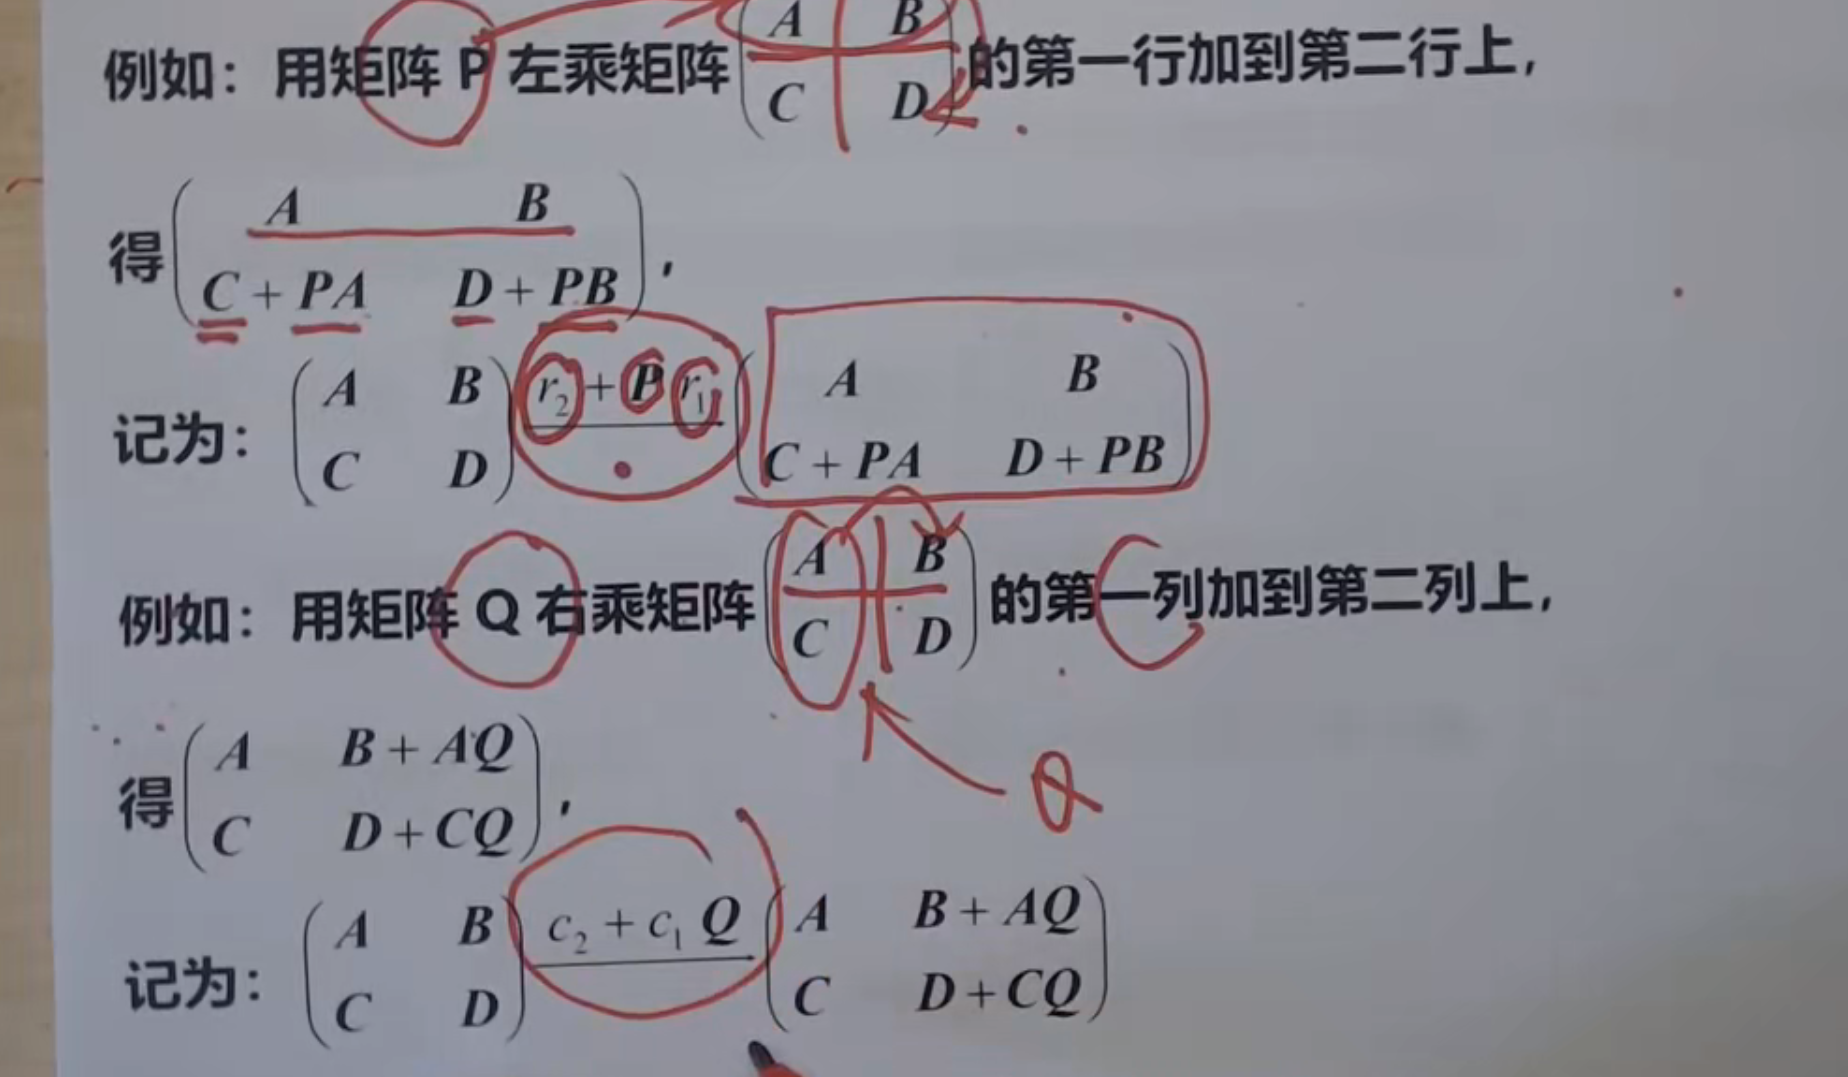 例如：用矩阵 P 左乘矩阵 (A B
C D) 的第一行加到第二行上，
得 (A B
C + PA D + PB)，
记为： (A B
C D) r₂ + P r₁ (A B
C + PA D + PB)
例如：用矩阵 Q 右乘矩阵 (A B
C D) 的第一列加到第二列上，
Q
得 (A B + AQ
C D + CQ)，
记为： (A B
C D) c₂ + c₁ Q (A B + AQ
C D + CQ)